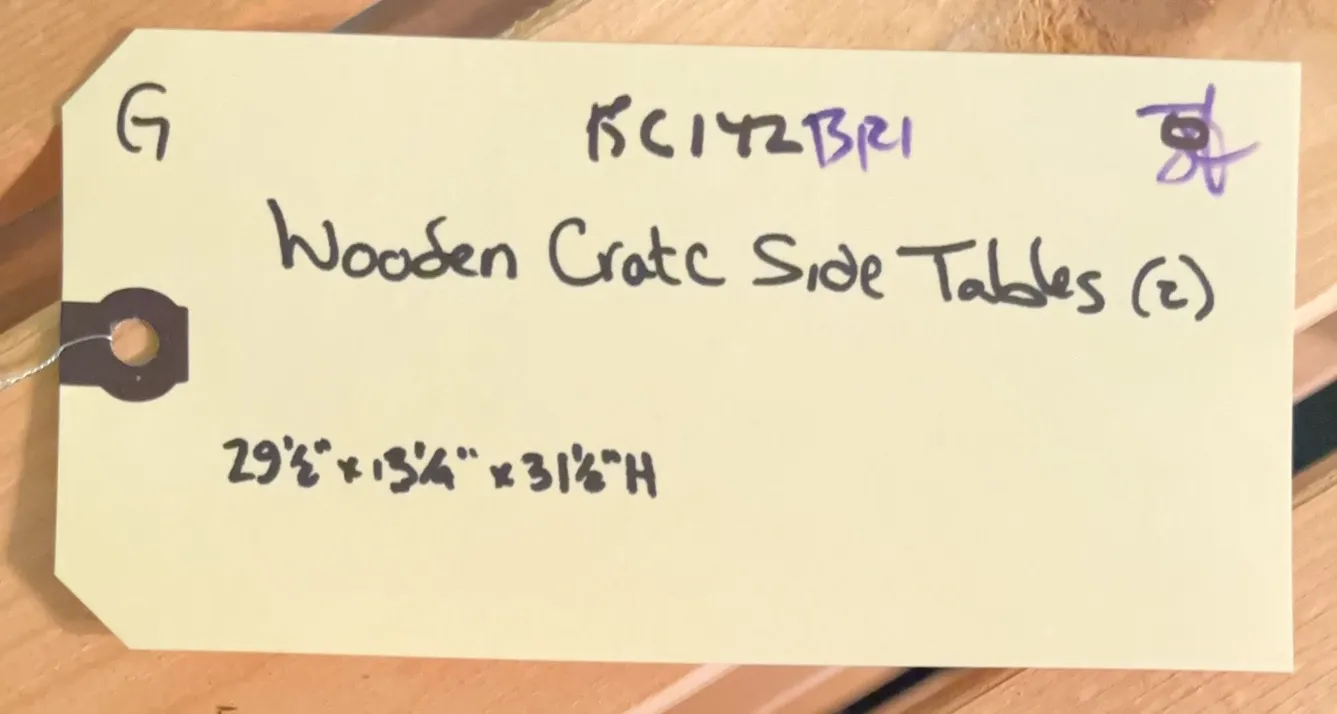 G
KC142BR1
Wooden Crate Side Tables (2)
29½" x 13¼" x 31½" H